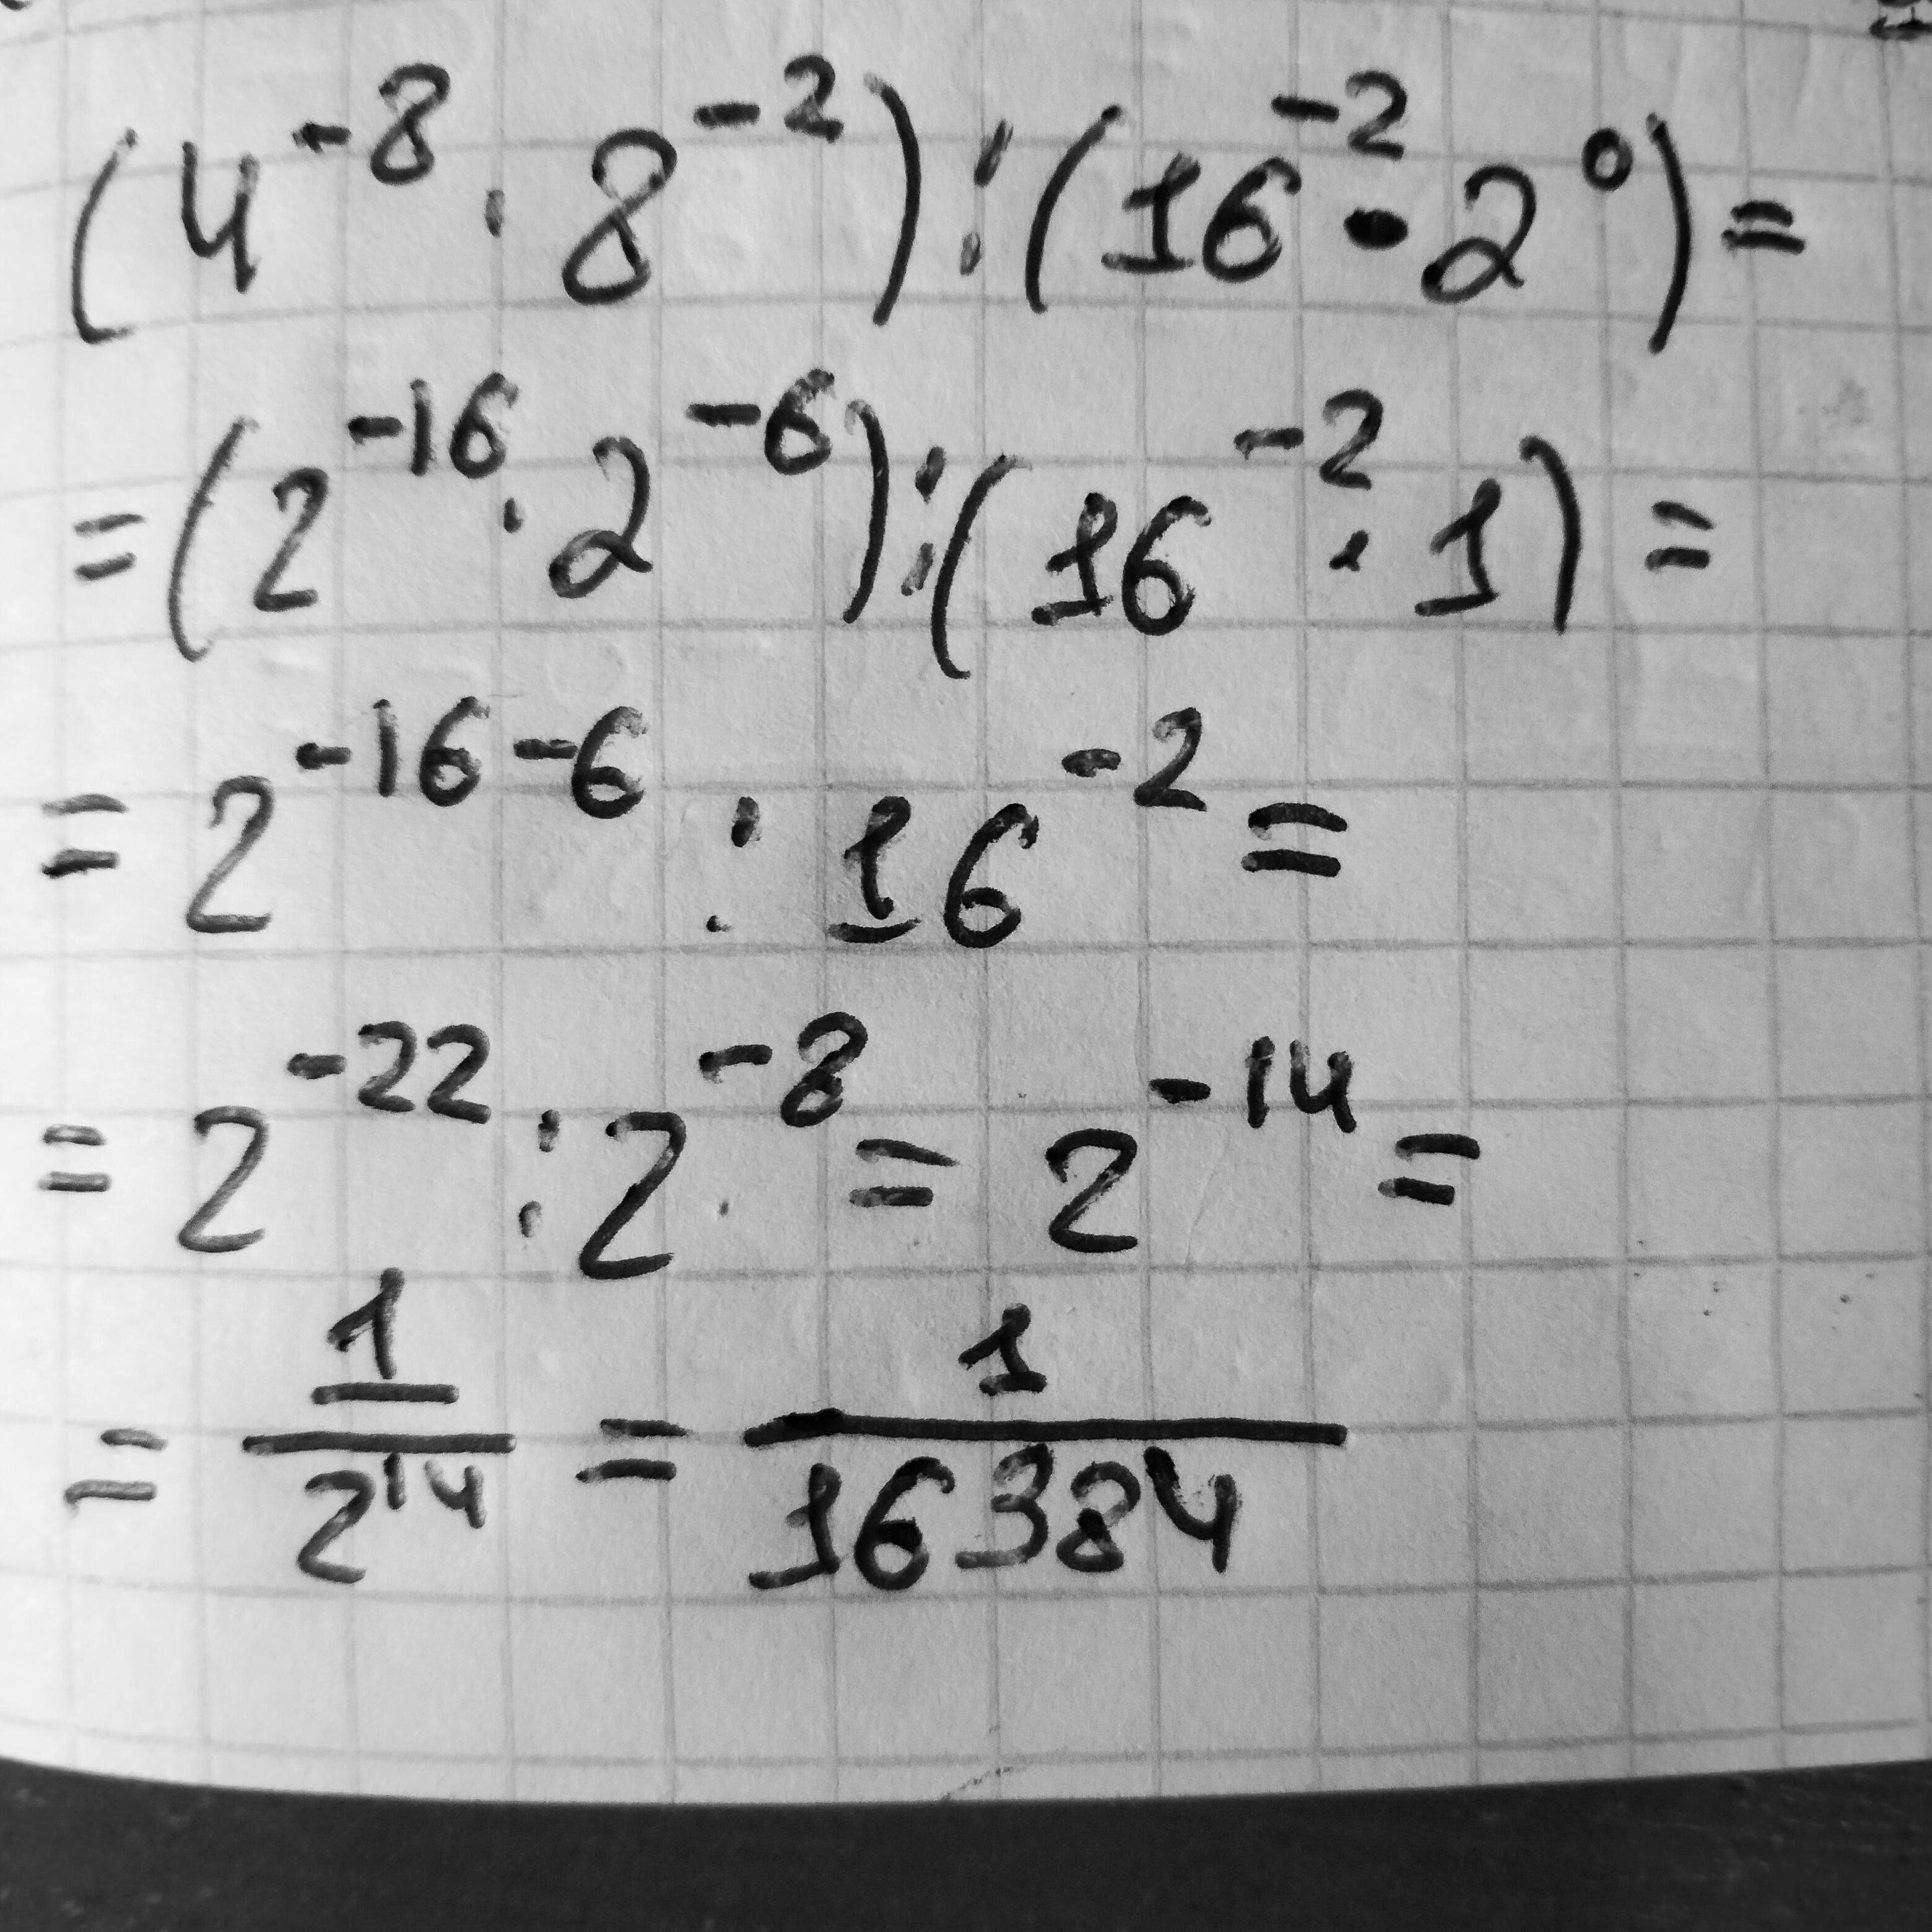 (4⁻⁸ · 8⁻²) : (16⁻² · 2⁰) =
= (2⁻¹⁶ · 2⁻⁶) : (16⁻² · 1) =
= 2⁻¹⁶⁻⁶ : 16⁻² =
= 2⁻²² : 2⁻⁸ = 2⁻¹⁴ =
= 1/2¹⁴ = 1/16384